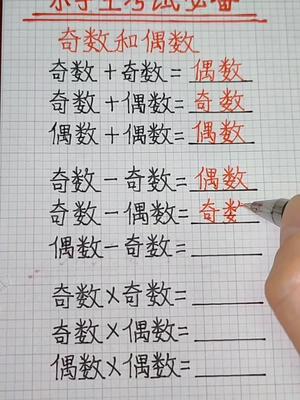 小学生考试必备
奇数和偶数
奇数+奇数=偶数
奇数+偶数=奇数
偶数+偶数=偶数
奇数-奇数=偶数
奇数-偶数=奇数
偶数-奇数=
奇数×奇数=
奇数×偶数=
偶数×偶数=